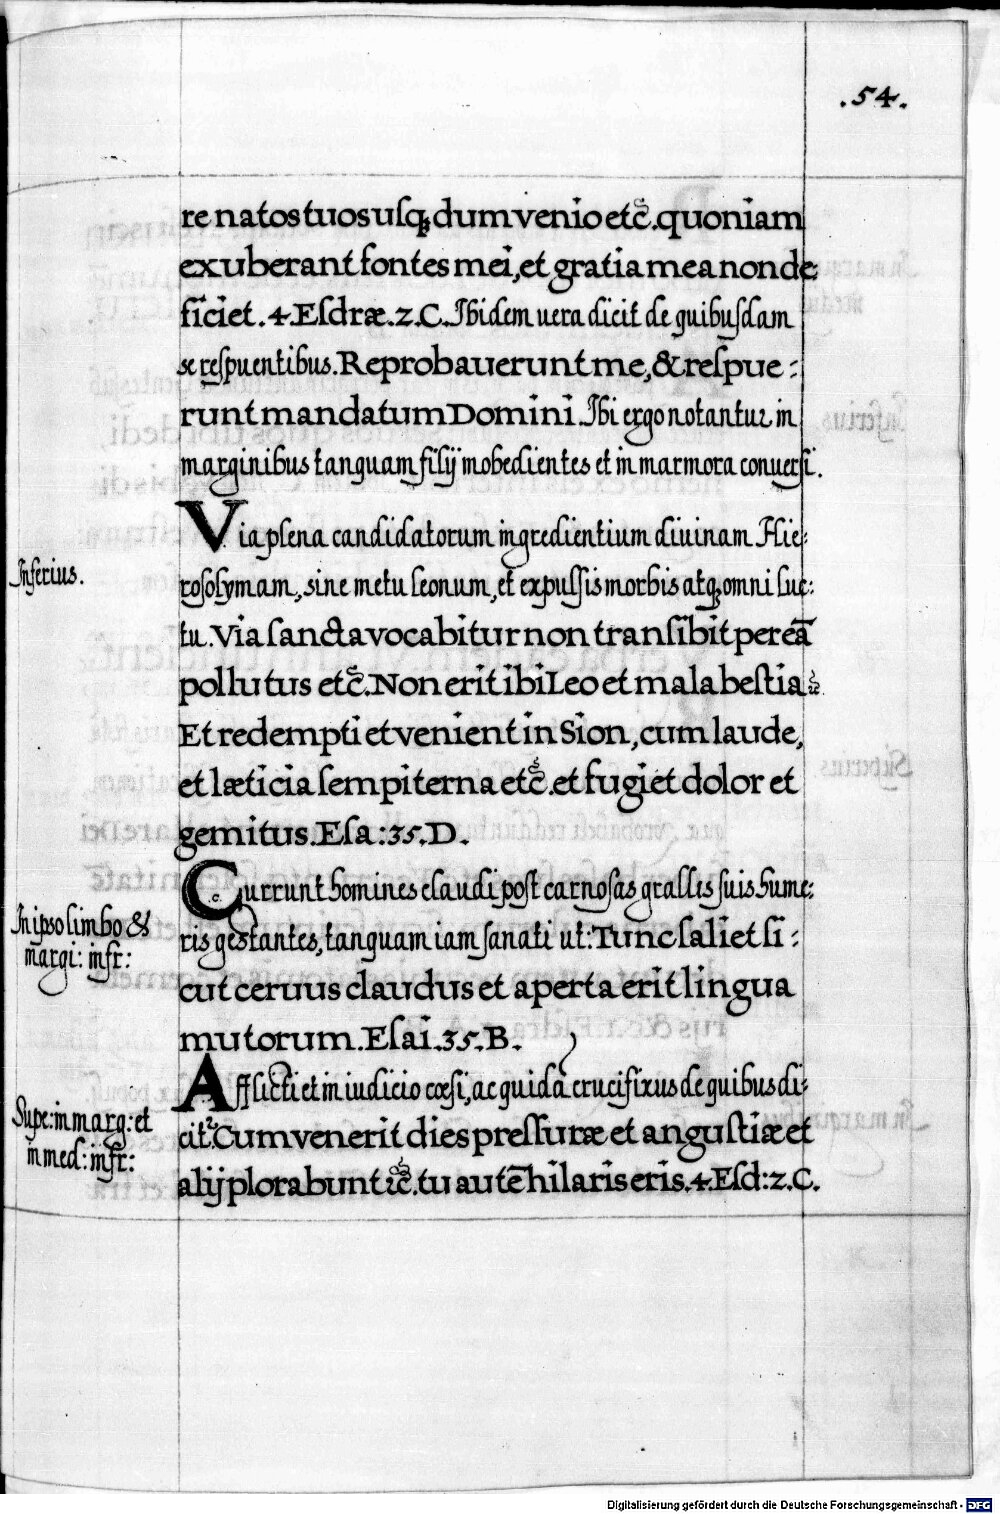 .54.
re natos tuos usq; dum venio etc̄. quoniam
exuberant fontes mei, et gratia mea non de:
ficiet. 4. Esdræ. 2. C. Ibidem uera dicit de quibusdam
se respuentibus. Reprobauerunt me, & respue:
runt mandatum Domini. Ibi ergo notantur in
marginibus tanquam filij inobedientes et in marmora conuersi.
Via plena candidatorum ingredientium diuinam Hie:
Inferius.
rosolymam, sine metu leonum, et expulsis morbis atq; omni luc:
tu. Via sancta vocabitur non transibit per eā
pollutus etc̄. Non erit ibi Leo et mala bestia &
Et redempti et venient in Sion, cum laude,
et læticia sempiterna etc̄. et fugiet dolor et
gemitus. Esa: 35. D.
Currunt homines claudi post carnosas grallis suis hume:
In ipso limbo &
margi: infr:
ris gestantes, tanquam iam sanati ut: Tunc saliet si:
cut ceruus claudus et aperta erit lingua
mutorum. Esai. 35. B.
Afflicti et in iudicio cœsi, ac quidā crucifixus de quibus di:
Supe: in marg: et
in med: infr:
cit. Cum venerit dies pressuræ et angustiæ et
alij plorabunt etc̄. tu autē hilaris eris. 4. Esd: 2. C.
Digitalisierung gefördert durch die Deutsche Forschungsgemeinschaft - DFG